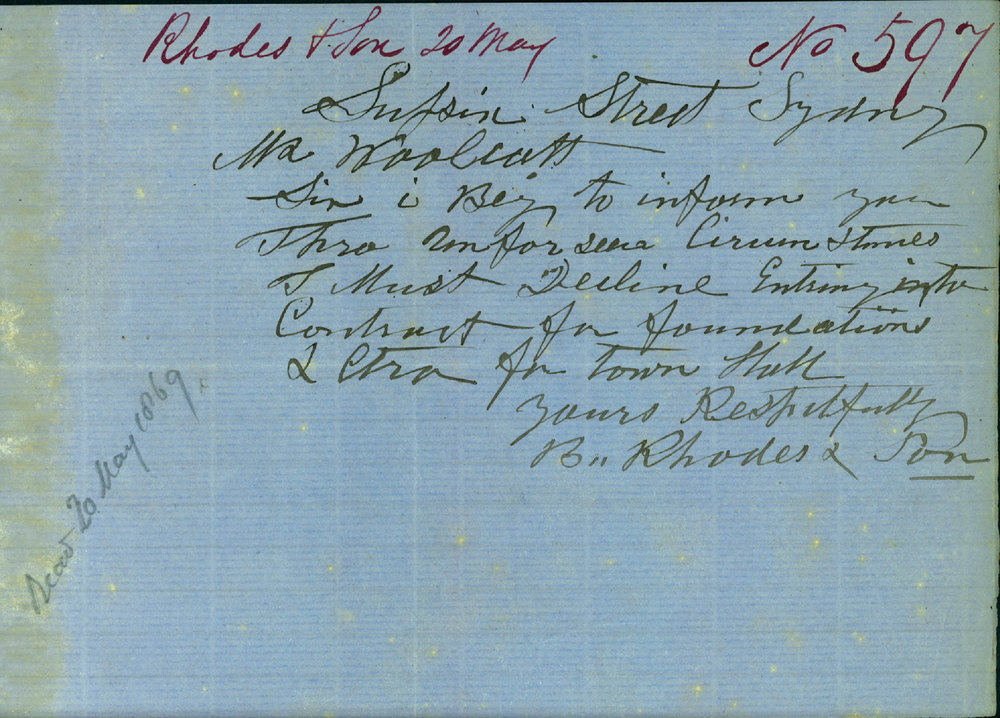 Rhodes & Son 20 May No 597
Street Sydney
Mr Woolcott
Sir i Beg to inform you
Thro unforseen Circumstances
I Must Decline Entring into
Contract for foundations
& Ctra for Town Hall
yours Respectfully
B,, Rhodes & Son
20 May 1869.